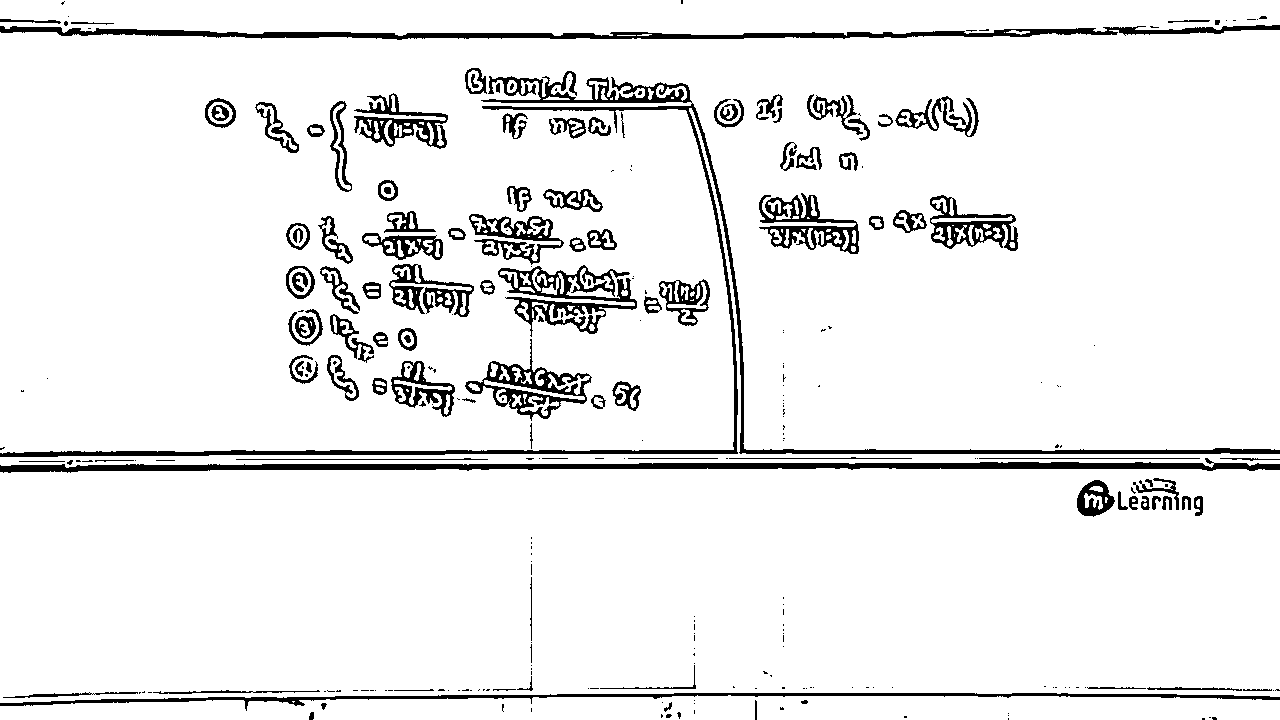 Binomial Theorem
② ⁿCᵣ = { n! / r!(n-r)! if n≥r
0 if n<r
① ⁷C₂ = 7! / 2!×5! = 7×6×5! / 2×5! = 21
② ⁿC₂ = n! / 2!(n-2)! = n×(n-1)×(n-2)! / 2×(n-2)! = n(n-1) / 2
③ ¹²C₁₇ = 0
④ ⁸C₃ = 8! / 3!×5! = 8×7×6×5! / 6×5! = 56
If ⁽ⁿ⁺¹⁾C₃ = 2×(ⁿC₂)
find n
(n+1)! / 3!×(n-2)! = 2× n! / 2!×(n-2)!
m Learning